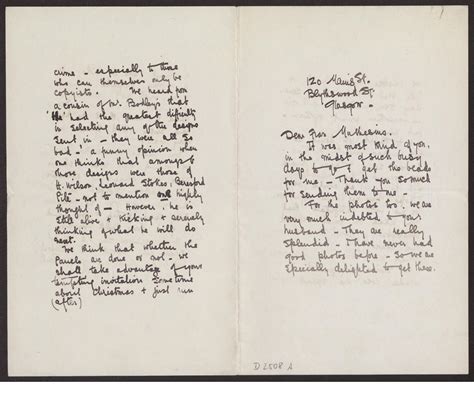 crime - especially to those
who can themselves only be
copyists. We heard from
a cousin of Mr. Bodley's that
He had the greatest difficulty
in selecting any of the designs
sent in, - they were all so
bad - a funny opinion when
one thinks that amongst
those designs were those of
H. Wilson, Leonard Stokes, Beresford
Pite - not to mention one highly
thought of - However, he is
still alive + kicking + seriously
thinking of what he will do
next.
We think that whether the
Panels are done or not - we
shall take advantage of your
tempting invitation sometime
about Christmas + just run
(after)
120 Mains St.
Blythswood Sq.
Glasgow.
Dear Frau Muthesius.
It was most kind of you,
in the midst of such busy
days to get the beads
for me - Thank you so much
for sending them to me -
For the photos too, we are
very much indebted to your
husband - They are really
splendid - I have never had
good photos before - so we are
specially delighted to get these.
D 2508 A